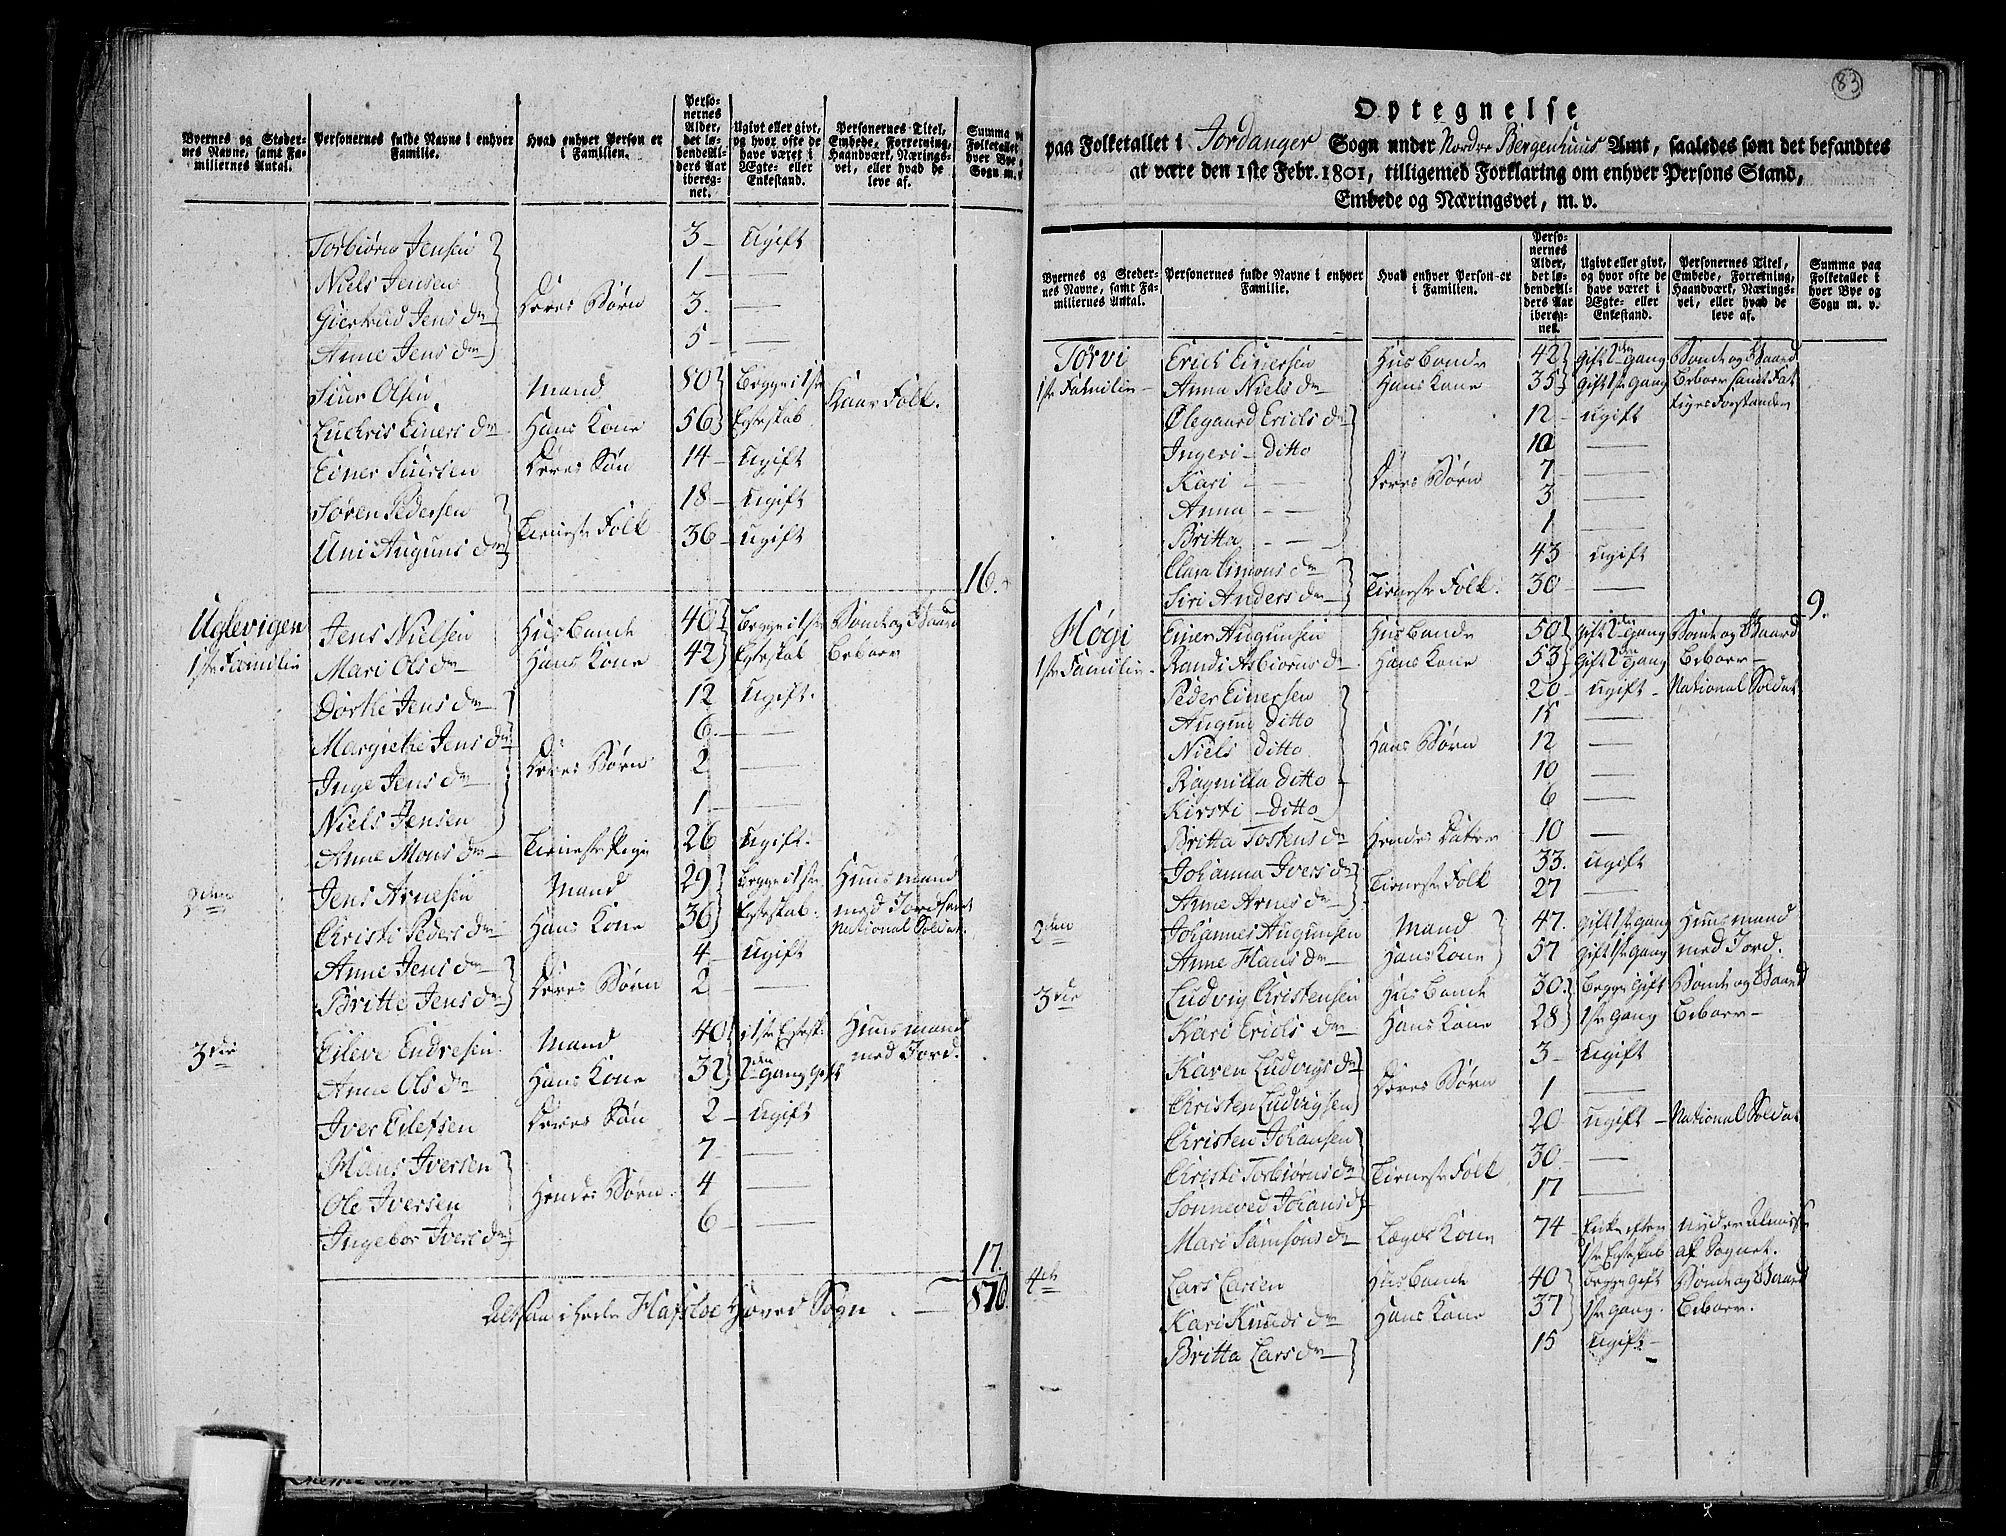 Byernes og Steder-
nes Navne, samt Fa-
miliernes Antal.
Personernes fulde Navne i enhver
Familie.
Hvad enhver Person er
i Familien.
Perso-
nernes
Alder,
det lø-
bende Al-
ders Aar
ibereg-
net.
Ugivt eller givt,
og hvor ofte de
have været i
Ægte- eller
Enkestand.
Personernes Titel,
Embede, Forretning,
Haandværk, Nærings-
vei, eller hvad de
leve af.
Summa
Folketallet
hver Bye
Sogn m.
Torbiørn Jensen 3 – Ugift
Niels Jensen 1 –
Giertrud Jens Dr Deres Børn 3.
Anne Jens Dr 5 –
Siur Olsen Mand 80 Begge i 1ste Kaar Folk.
Luchris Einers Dr Hans Kone 56 Egteskab
Einer Siursen Deres Søn 14 – Ugift
Søren Pedersen 18 – Ugift
Uni Auguns Dr Tieneste Folk 36 – Ugift
16.
Uglevigen Jens Nielsen Husbonde 40 Begge i 1ste Bonde og Gaard
1ste Familie Mari Ols Dr Hans Kone 42 Egteskab Beboer
Dorthe Jens Dr 12 Ugift.
Margrethe Jens Dr 6. –
Inge Jens Dr Deres Børn 2 –
Niels Jensen 1 –
Anne Mons Dr Tieneste Pige 26 Ugift.
2den Jens Arnesen Mand 29 Begge i 1ste Huusmand
Christi Peders Dr Hans Kone 36 Egteskab. med Jord samt
National Soldat.
Anne Jens Dr 4 – Ugift
Britte Jens Dr Deres Børn 2 –
3die Eileve Endresen Mand 40 1ste Egtesk: Huusmand
med Jord.
Anne Ols Dr Hans Kone 32 2den Gang Gift
Iver Eilefsen Deres Søn 2 – Ugift
Hans Iversen 7 –
Ole Iversen Hendes Børn 4 –
Ingebor Ivers Dr 6 –
17.
Altsaa i hele Hafsloe Hoved Sogn. – 876.
83
Optegnelse
paa Folketallet i Jordanger Sogn under Nordre Bergenhuus Amt, saaledes som det befandtes
at være den 1ste Febr. 1801, tilligemed Forklaring om enhver Persons Stand,
Embede og Næringsvei, m. v.
Byernes og Steder-
nes Navne, samt Fa-
miliernes Antal.
Personernes fulde Navne i enhver
Familie.
Hvad enhver Person er
i Familien.
Perso-
nernes
Alder,
det lø-
bende Al-
ders Aar
iberegnet.
Ugivt eller givt,
og hvor ofte de
have været i
Ægte- eller
Enkestand.
Personernes Titel,
Embede, Forretning,
Haandværk, Nærings-
vei, eller hvad de
leve af.
Summa paa
Folketallet i
hver Bye og
Sogn m. v.
Torvi Erich Einersen Husbonde 42 Gift 2den Gang Bonde og Gaard
1ste Familie – Anna Niels Dr Hans Kone 35 Gift 1ste Gang Beboer samt Fat
tiges Forstander
Ølegaard Erichs Dr 12 – Ugift
Ingeri – Ditto 10 –
Kari – – Deres Børn 7 –
Anna – – 3 –
Britta – – 1 –
Clara Simons Dr 43 Ugift
Siri Anders Dr Tieneste Folk. 30 –
9.
Høgi Einer Augunsen Husbonde 50 Gift 2den Gang Bonde og Gaard
1ste Familie – Randi Asbiørns Dr Hans Kone 53 Gift 2den Gang Beboer –
Peder Einersen 20 – Ugift – National Soldat
Augun Ditto 15 –
Niels Ditto Hans Børn 12 –
Ragnilla Ditto 10 –
Kirsti – Ditto 6 –
Britta Tostens Dr Hendes Datter 10 –
Johanna Ivers Dr 33. Ugift
Anne Arnes Dr Tieneste Folk 27 –
2den Johannes Augunsen Mand 47. Gift 1ste Gang Huusmand
Anne Hans Dr Hans Kone 57 Gift 1ste Gang med Jord.
3die Ludvig Christensen Husbonde 30. Begge Gift Bonde og Gaard
Kari Erichs Dr Hans Kone 28 1ste Gang Beboer –
Karen Ludvigs Dr 3 – Ugift
Christen Ludvigsen Deres Børn 1 –
Christen Johansen 20 Ugift – National Soldat
Christi Torbiørns Dr Tieneste Folk 30. –
Sonneved Johans D 17 –
Mari Samsons Dr Lægds Kone 74 Enke efter nyder Almisse
1ste Egteskab af Sognet.
4de Lars Larsen Husbonde 40 Begge Gift Bonde og Gaard
Kari Knuds Dr Hans Kone 37 1ste Gang. Beboer.
Britta Lars Dr 15 Ugift –